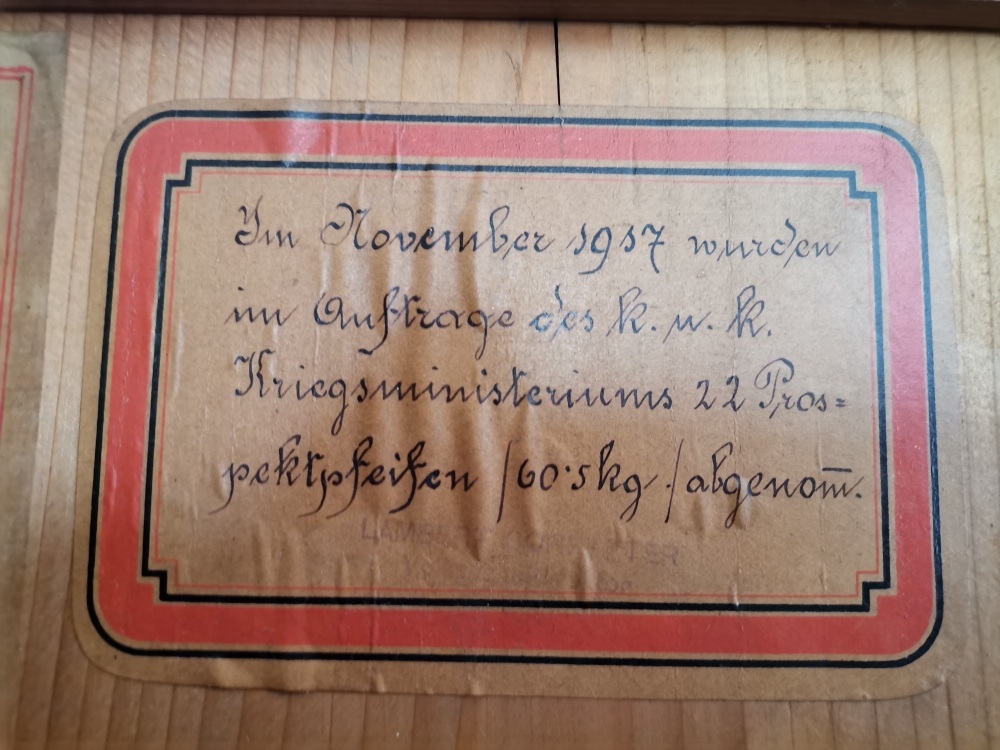 Im November 1917 wurden
im Auftrage des k. u. k.
Kriegsministeriums 22 Pros=
pektpfeifen /60·5kg./abgenom̅.